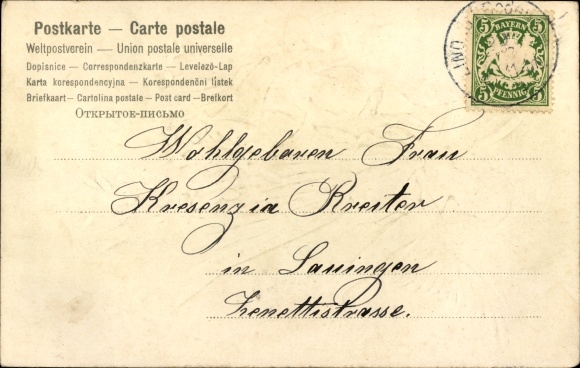 Postkarte — Carte postale
Weltpostverein — Union postale universelle
Dopisnice — Correspondenzkarte — Levelező-Lap
Karta korespondencyjna — Korespondenčni listek
Briefkaart — Cartolina postale — Post card — Brefkort
Открытое-письмо
5 5
BAYERN
PFENNIG
5 5
Wohlgebaren Frau
Kresenzia Kreiter
in Lauingen
Zenettistrasse.